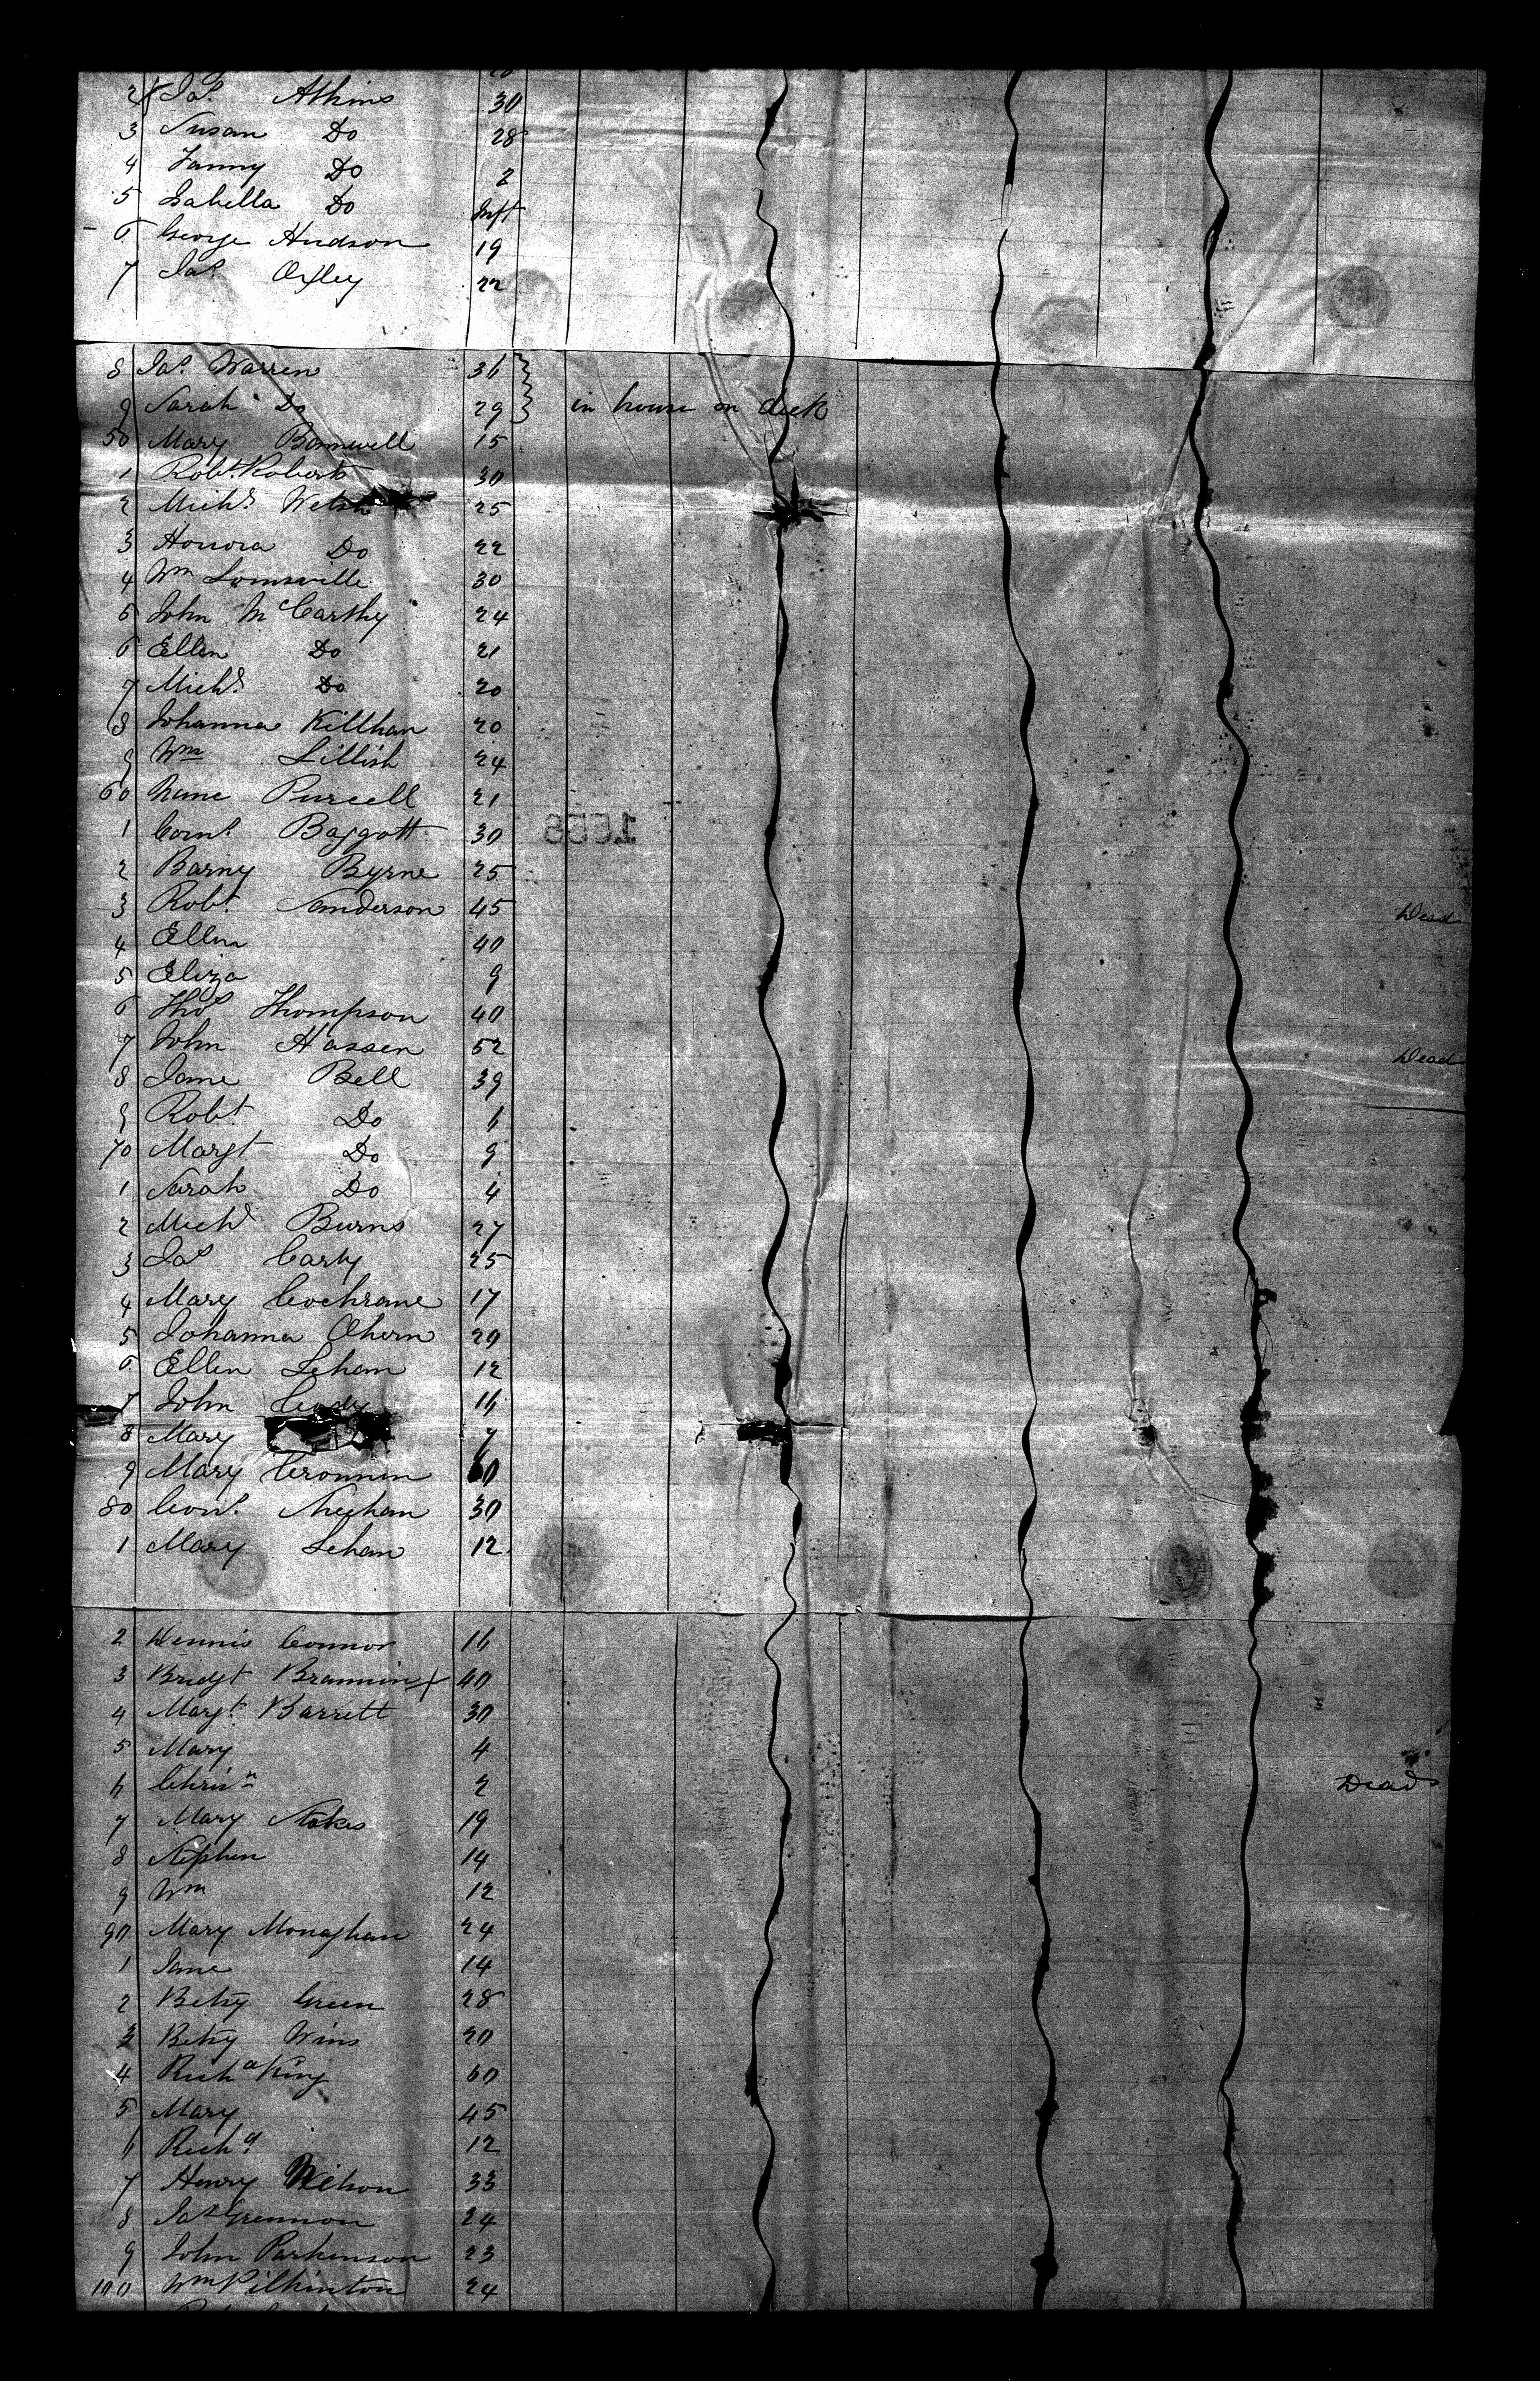 2 Jas Atkins 30
3 Susan Do 28
4 Fanny Do 2
5 Isabella Do Inft
6 George Hudson 19
7 Jas Oxley 22
8 Jas Warren 36
9 Sarah Do 29 in house on deck
50 Mary Bamwell 15
1 Robt. Roberts 30
2 Michl Welsh 25
3 Honora Do 22
4 Wm 30
5 John McCarthy 24
6 Ellen Do 21
7 Michl Do 20
8 Johanna Killhan 20
9 Wm Lillish 24
60 Purcell 21
1 Corns Baggott 30
2 Barny Byrne 25
3 Robt Sanderson 45 Dead
4 Ellen 40
5 Eliza 9
6 Thos Thompson 40
7 John Hassen 52 Dead
8 Jane Bell 39
9 Robt Do 6
70 Margt Do 9
1 Sarah Do 4
2 Michl Burns 27
3 Jas Carty 25
4 Mary Cochrane 17
5 Johanna Ahern 20
6 Ellen Lehan 12
7 John 16
8 Mary 7
9 Mary Cronnin 60
80 Corns Meehan 30
1 Mary Lehan 12
2 Dennis Connor 16
3 Bridgt Brannin X 40
4 Margt Barrett 30
5 Mary 4
6 Chrisn 2 Dead
7 Mary Stokes 19
8 Stephen 14
9 Wm 12
90 Mary Monaghan 24
1 Jane 14
2 Betsy Green 28
3 Betsy Wins 20
4 Richd King 60
5 Mary 45
6 Richd 12
7 Henry Wilson 33
8 Jas Grennon 24
9 John Parkinson 23
100 Wm Pilkinton 24